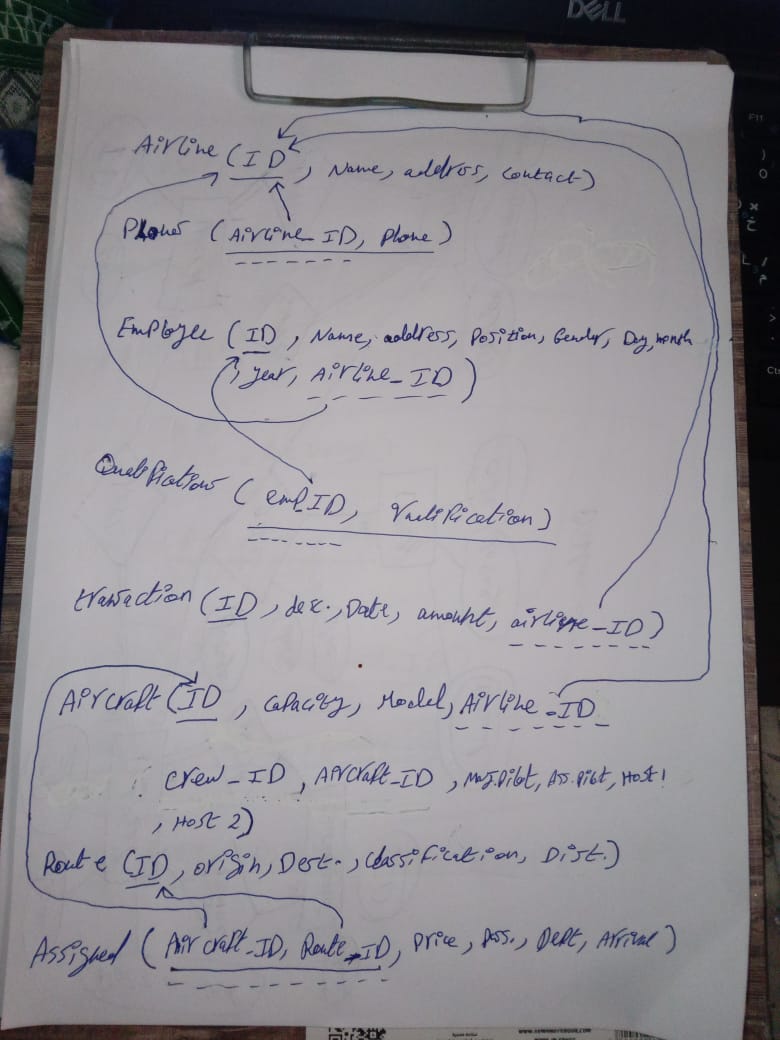 DELL
F11
Airline (ID, Name, address, contact)
Phones (Airline_ID, Phone)
Employee (ID, Name, address, Position, Gender, Day, month
year, Airline_ID)
Qualifications (emp_ID, Qualification)
transaction (ID, des., Date, amount, airline_ID)
Aircraft (ID, capacity, Model, Airline_ID
crew_ID, Aircraft_ID, Maj.Pilot, Ass.Pilot, Host1
, Host 2)
Route (ID, origin, Dest., classification, Dist.)
Assigned (Aircraft_ID, Route_ID, Price, Pass., Dept, Arrival)